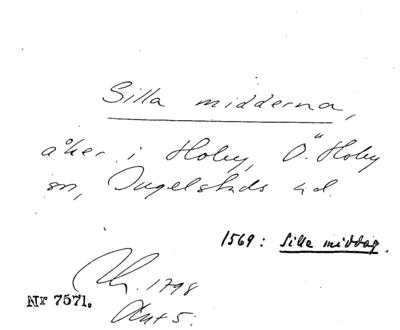 Silla midderna,
åker i Hoby, Ö. Hoby
sn, Ingelstads hd.
1569: Silla middag.
1798
Nr 7571.
Akt 5.